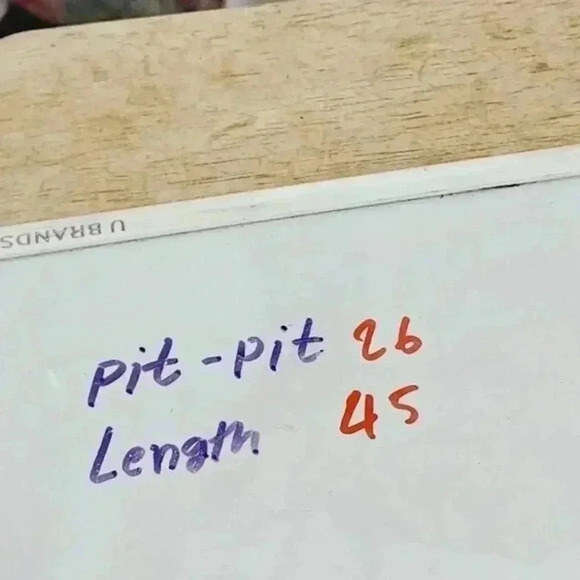 U BRANDS
pit - pit 26
Length 45